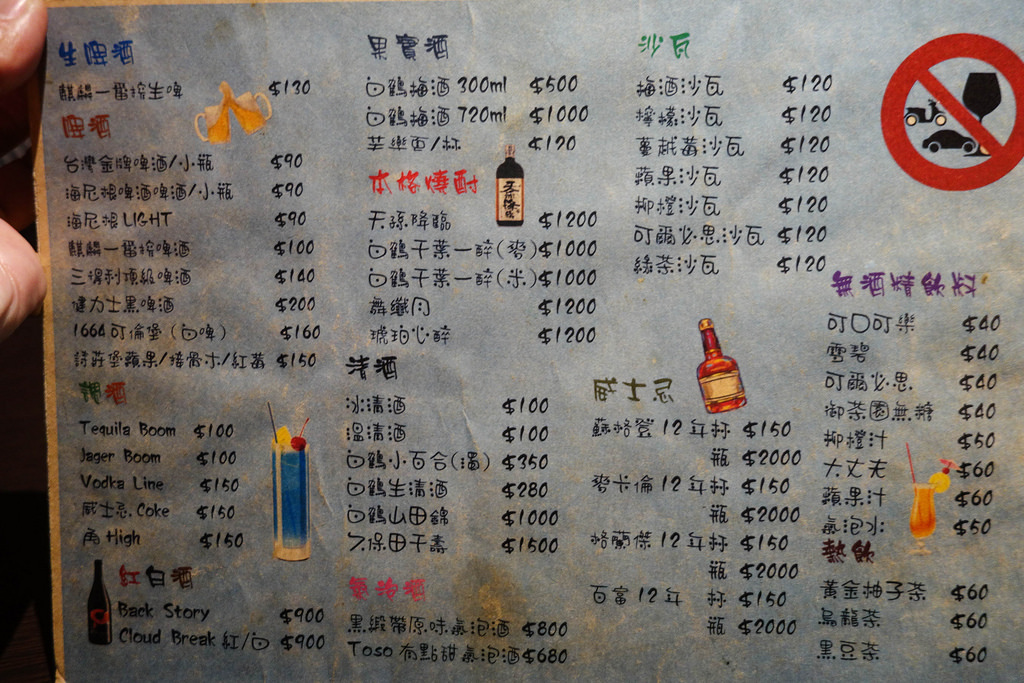 生啤酒
麒麟一番搾生啤 $130
啤酒
台灣金牌啤酒/小瓶 $90
海尼根啤酒啤酒/小瓶 $90
海尼根LIGHT $90
麒麟一番搾啤酒 $100
三得利頂級啤酒 $140
健力士黑啤酒 $200
1664可倫堡(白啤) $160
詩莊堡蘋果/接骨木/紅莓 $150
調酒
Tequila Boom $100
Jager Boom $100
Vodka Line $150
威士忌 Coke $150
角 High $150
紅白酒
Back Story $900
Cloud Break 紅/白 $900
果實酒
白鶴梅酒 300ml $500
白鶴梅酒 720ml $1000
芊樂更/杯 $120
本格燒酎
天孫降臨 $1200
白鶴千葉一醉(麥) $1000
白鶴千葉一醉(米) $1000
舞纖月 $1200
琥珀心醉 $1200
清酒
冰清酒 $100
溫清酒 $100
白鶴小百合(濁) $350
白鶴生清酒 $280
白鶴山田錦 $1000
久保田千壽 $1500
氣泡酒
黑緞帶原味氣泡酒 $800
Toso 有點甜氣泡酒 $680
沙瓦
梅酒沙瓦 $120
檸檬沙瓦 $120
蔓越莓沙瓦 $120
蘋果沙瓦 $120
柳橙沙瓦 $120
可爾必思沙瓦 $120
綠茶沙瓦 $120
威士忌
蘇格登12年杯 $150
瓶 $2000
麥卡倫12年杯 $150
瓶 $2000
格蘭傑12年杯 $150
瓶 $2000
百富12年 杯 $150
瓶 $2000
無酒精飲料
可口可樂 $40
雪碧 $40
可爾必思 $40
御茶園無糖 $40
柳橙汁 $50
大丈夫 $60
蘋果汁 $60
氣泡水 $50
熱飲
黃金柚子茶 $60
烏龍茶 $60
黑豆茶 $60